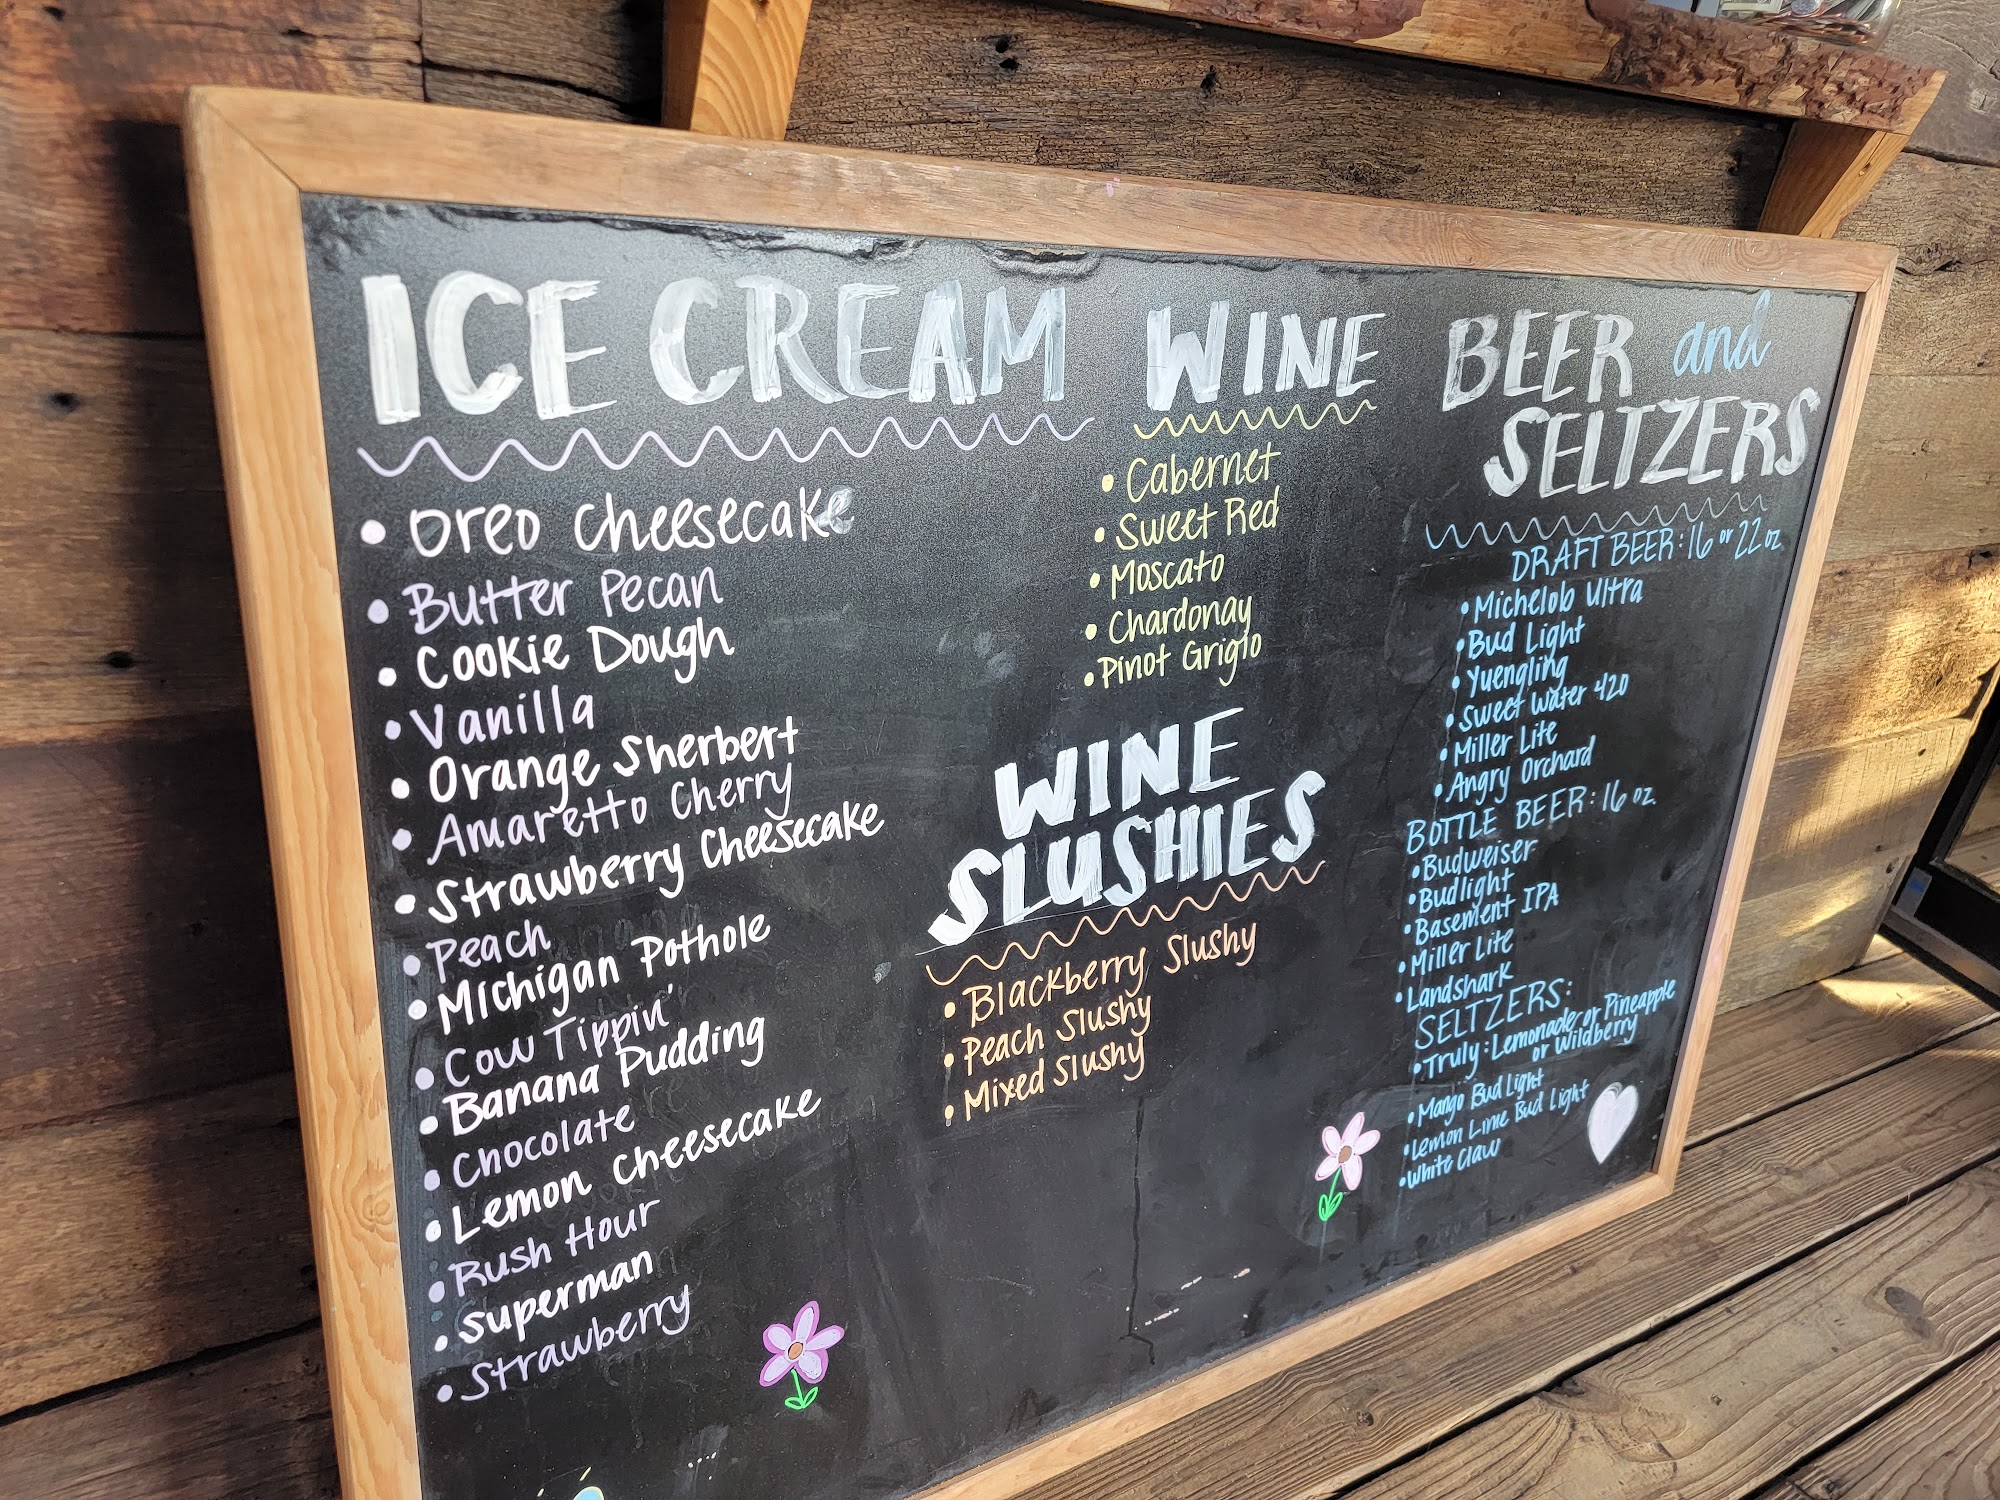 ICE CREAM
• Oreo Cheesecake
• Butter Pecan
• Cookie Dough
• Vanilla
• Orange Sherbert
• Amaretto Cherry
• Strawberry Cheesecake
• Peach
• Michigan Pothole
• Cow Tippin'
• Banana Pudding
• Chocolate
• Lemon Cheesecake
• Rush Hour
• Superman
• Strawberry
WINE
• Cabernet
• Sweet Red
• Moscato
• Chardonay
• Pinot Grigio
WINE
SLUSHIES
• Blackberry Slushy
• Peach Slushy
• Mixed Slushy
BEER and
SELTZERS
DRAFT BEER: 16 or 22 oz
• Michelob Ultra
• Bud Light
• Yuengling
• Sweet Water 420
• Miller Lite
• Angry Orchard
BOTTLE BEER: 16 oz.
• Budweiser
• Budlight
• Basement IPA
• Miller Lite
• Landshark
SELTZERS:
• Truly: Lemonade or Pineapple
or Wildberry
• Mango Bud Light
• Lemon Lime Bud Light
• White Claw